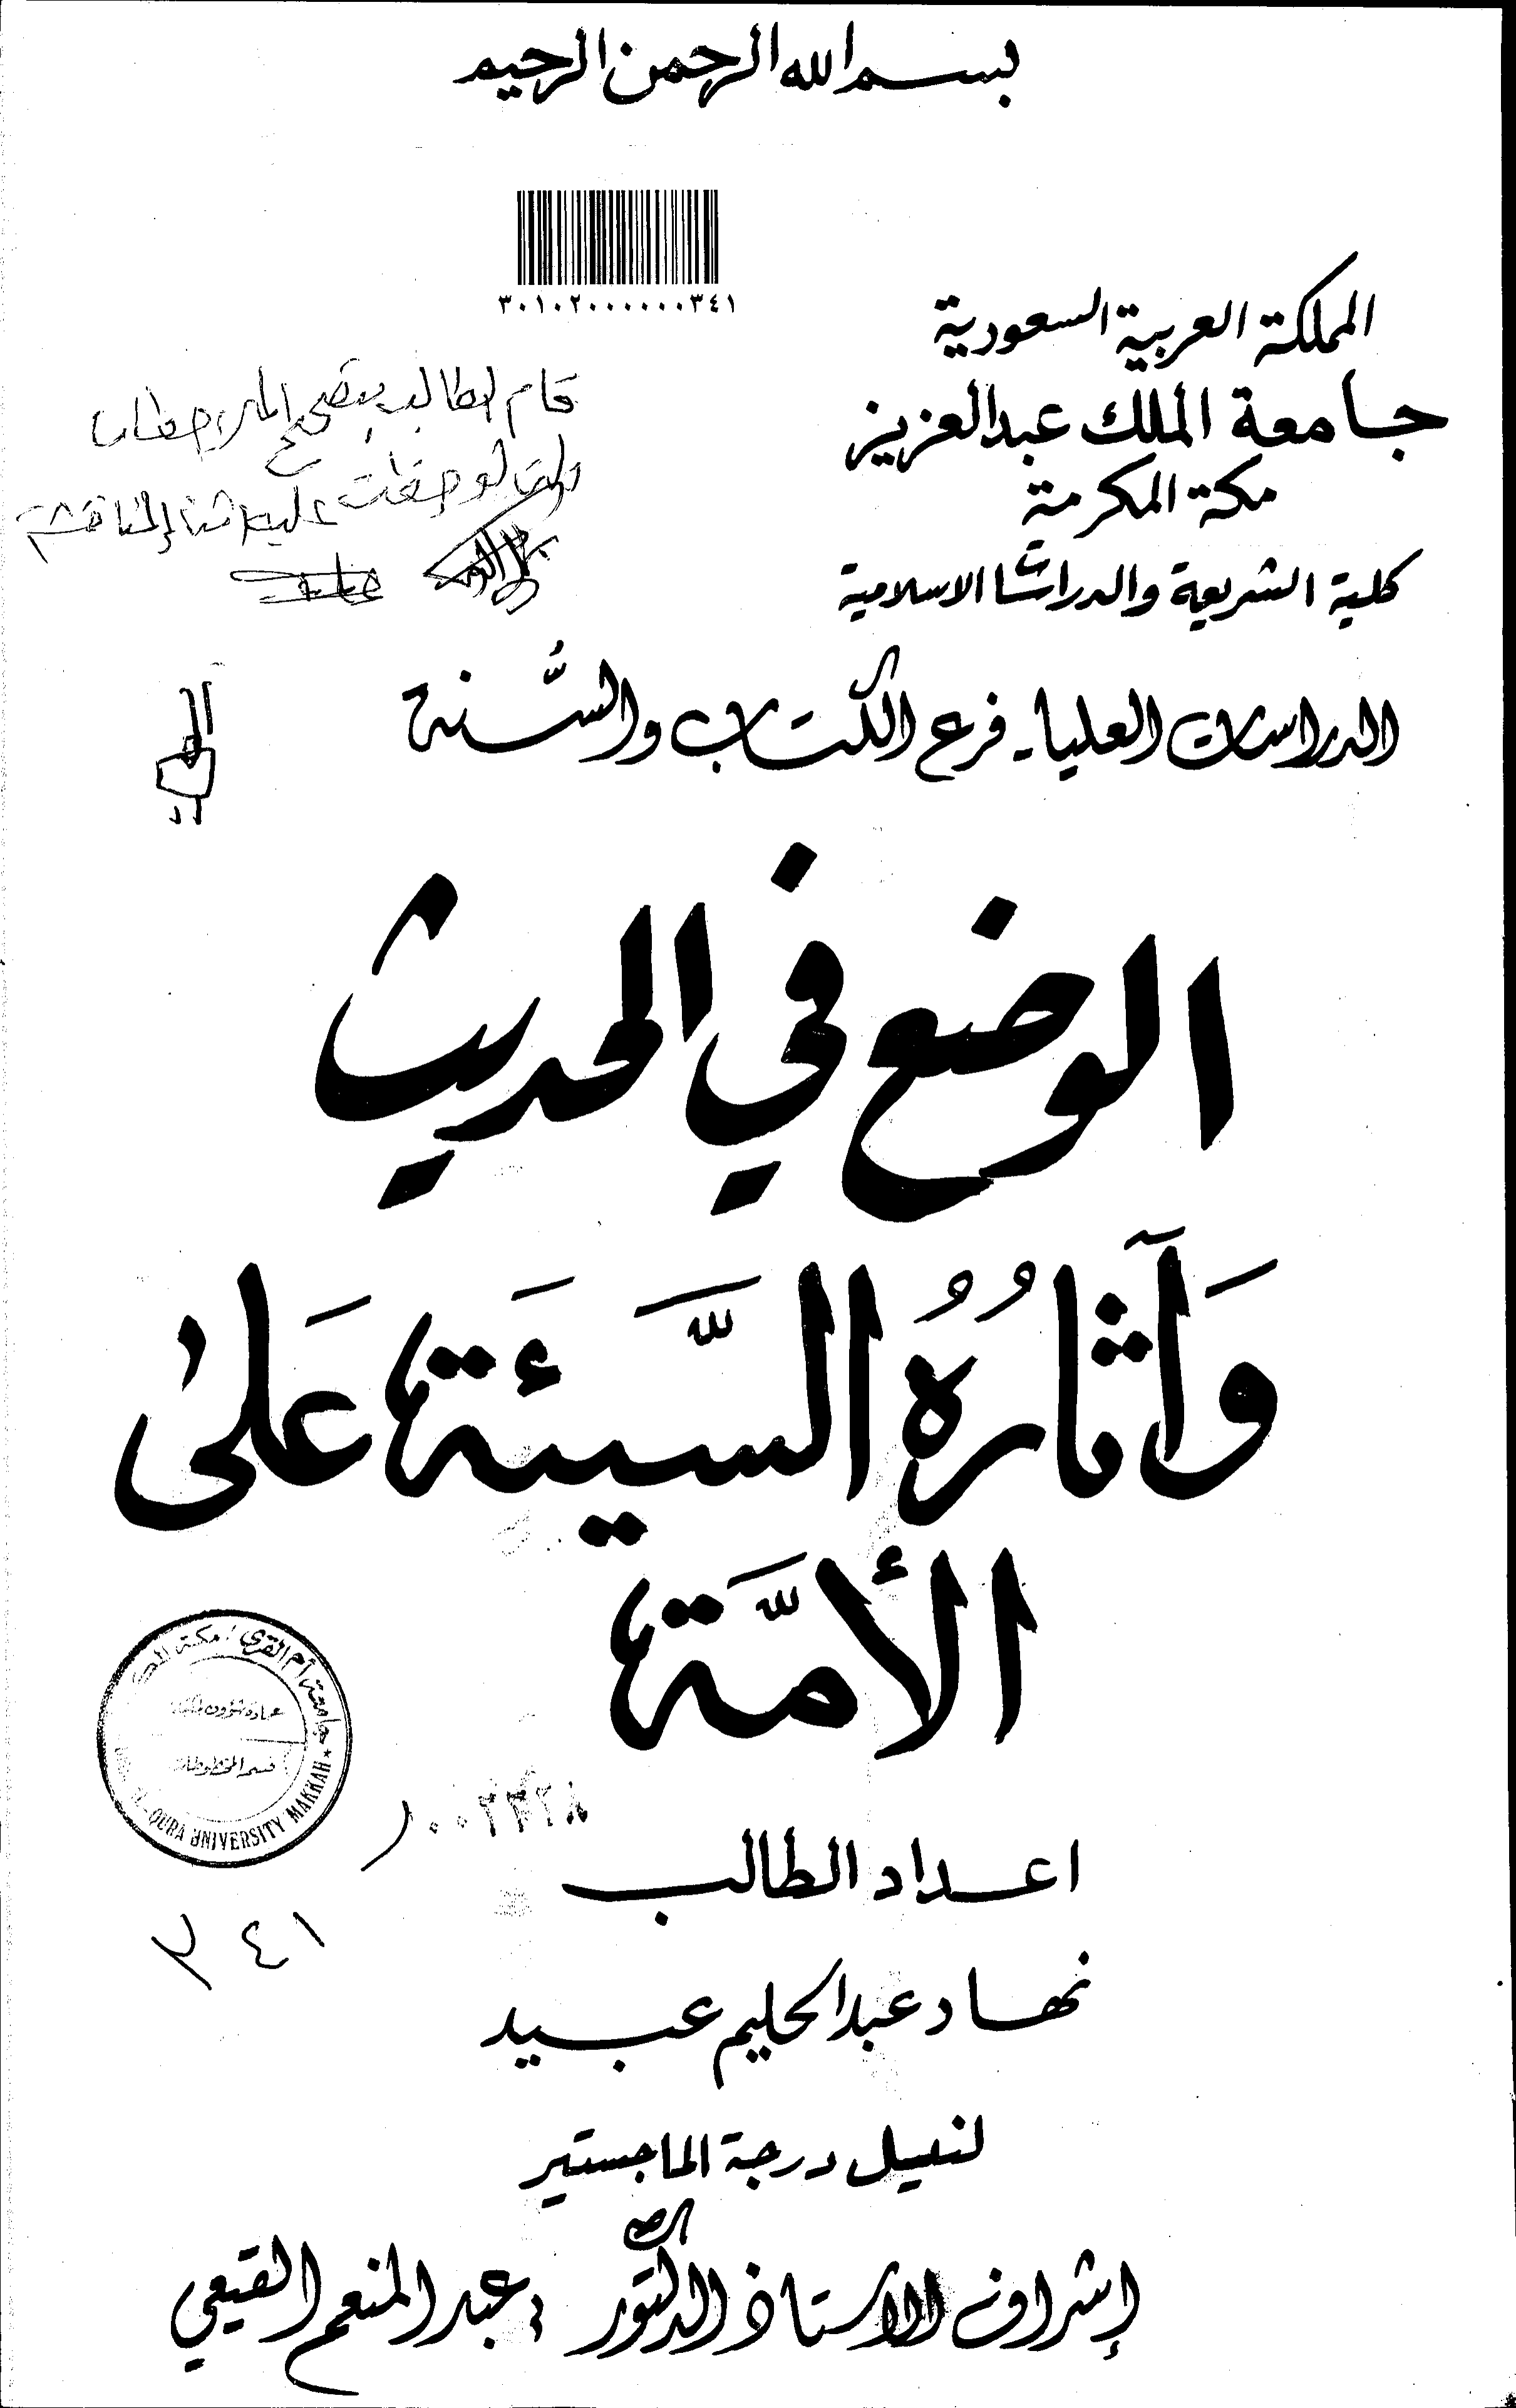 بسم الله الرحمن الرحيم
٣٠١٠٢٠٠٠٠٠٠٣٤١
المملكة العربية السعودية
جامعة الملك عبدالعزيز
مكة المكرمة
كلية الشريعة والدراسات الاسلامية
الدراسات العليا - فرع الكتاب والسُّنة
قام الطالب بتصحيح الملاحظات
عليه اثناء المناقشة
الوضع في الحديث
وَآثارُهُ السَّيئَة عَلىٰ
الأمَّة
جامعة أم القرى / مكة
عمادة شؤون
قسم المخطوطات
QURA UNIVERSITY MAKKAH
٣٤١
اعداد الطالب
نهاد عبدالحليم عبيد
لنيل درجة الماجستير
إشراف الاستاذ الدكتور : عبد المنعم القيعي